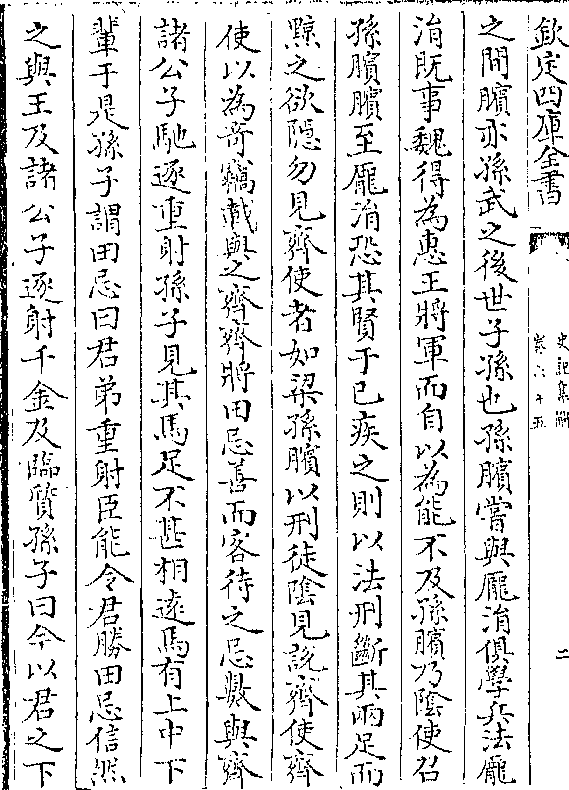 欽定四庫全書
史記集解
卷六十五
二
之間臏亦孫武之後世子孫也孫臏嘗與龐涓俱學兵法龐
涓既事魏得為惠王將軍而自以為能不及孫臏乃陰使召
孫臏臏至龐涓恐其賢于已疾之則以法刑斷其兩足而
黥之欲隠勿見齊使者如梁孫臏以刑徒陰見說齊使齊
使以為竒竊載與之齊齊將田忌善而客待之忌數與齊
諸公子馳逐重射孫子見其馬足不甚相逺馬有上中下
輩于是孫子謂田忌曰君弟重射臣能令君勝田忌信然
之與王及諸公子逐射千金及臨質孫子曰今以君之下